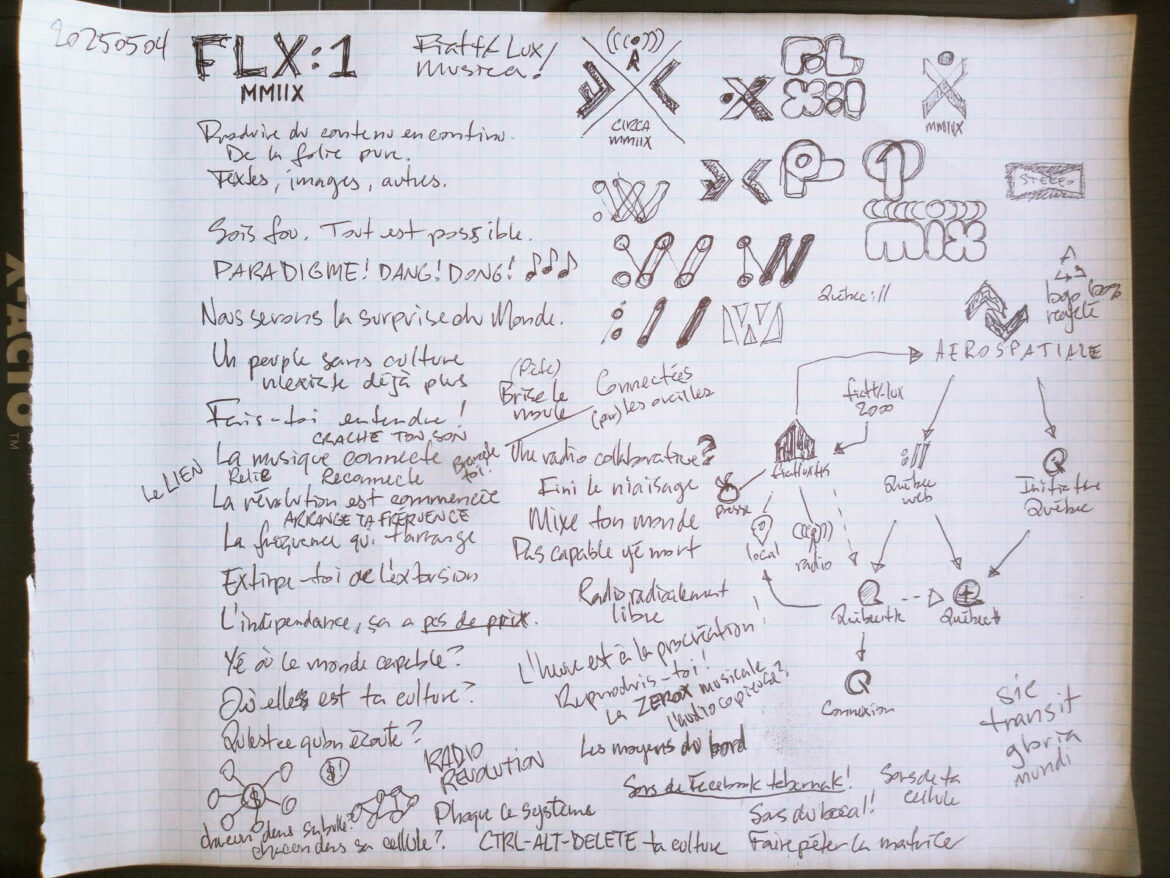 20250504
FLX:1
MMIIX
Fiattk Lux
Musica!
Produire du contenu en continu.
De la folie pure.
Textes, images, autres.
Sois fou. Tout est possible.
PARADIGME! DANG! DONG! ♪♪♪
Nous serons la surprise du Monde.
Un peuple sans culture
n'existe déjà plus
Fais-toi entendre!
CRACHE TON SON
La musique connecte
Relie Reconnecte
Le LIEN
La révolution est commencée
ARRANGE TA FRÉQUENCE
La fréquence qui t'arrange
Extirpe-toi de l'extorsion
L'indépendance, ça a pas de prix.
Yé où le monde capable?
Où elles est ta culture?
Qu'est-ce qu'on écoute?
$
$!
chacun dans sa bulle?
chacun dans sa cellule?
RADIO
REVOLUTION
Phaque le système
CTRL-ALT-DELETE ta culture
Brise le
moule
Connectées
(par) les oreilles
toi!
Une radio collaborative?
Fini le niaisage
Mixe ton monde
Pas capable yé mort
Radio radicalement
libre
L'heure est à la procréation
Reproduis-toi!
La ZEROX musicale
l'audiocopieuse?
Les moyens du bord
Sors de Facebook tabarnak!
Sors du bocal!
Sors de ta
cellule
Faire péter la matrice
R
CIRCA
MMIIX
FL
X:1
MMIIX
STEREO
mix
W
Québec://
AEROSPATIALE
100%
recyclé
fiattk lux
2000
presse
local
radio
Québec
web
Initiative
Québec
Québecttk
Québec+
Connexion
sic
transit
gloria
mundi
X-ACTO™